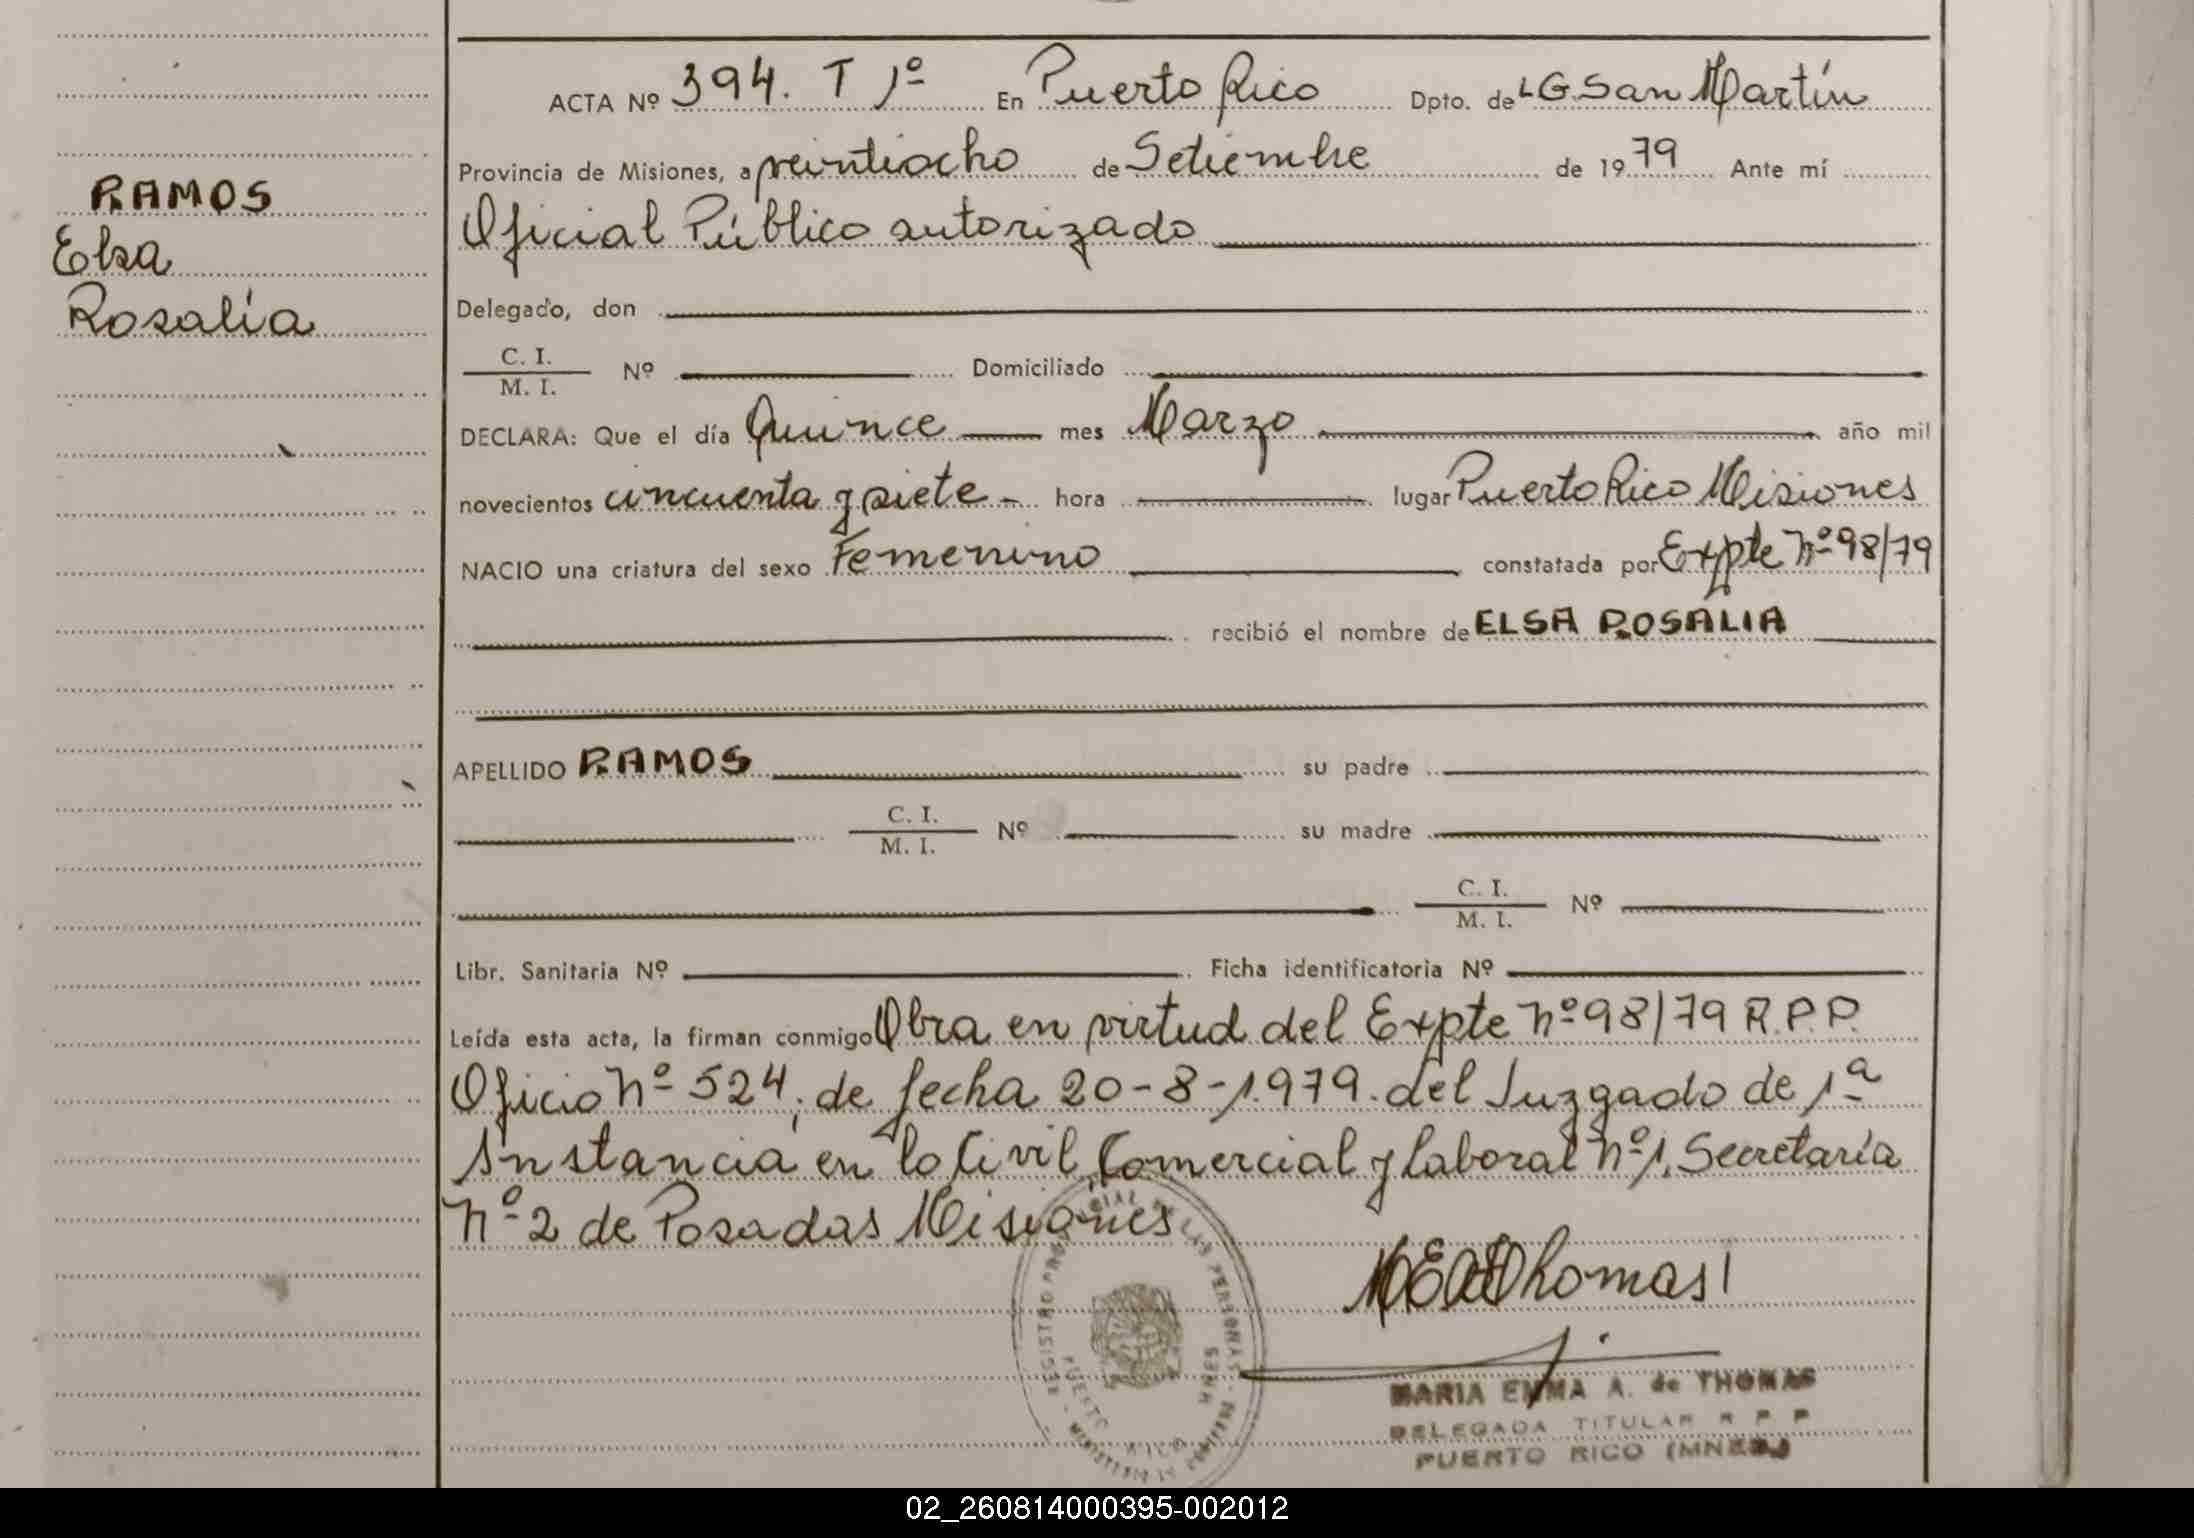 RAMOS
Elsa
Rosalía
ACTA Nº 394. T 1º En Puerto Rico Dpto. de L G San Martín
Provincia de Misiones, a veintiocho de Setiembre de 1979 Ante mí
Oficial Público autorizado
Delegado, don
C. I.
M. I. Nº Domiciliado
DECLARA: Que el día Quince mes Marzo año mil
novecientos cincuenta y siete hora lugar Puerto Rico Misiones
NACIO una criatura del sexo Femenino constatada por Expte Nº 98/79
recibió el nombre de ELSA ROSALIA
APELLIDO RAMOS su padre
C. I.
M. I. Nº su madre
C. I.
M. I. Nº
Libr. Sanitaria Nº Ficha identificatoria Nº
Leída esta acta, la firman conmigo Obra en virtud del Expte Nº 98/79 R.P.P.
Oficio Nº 524, de fecha 20-8-1979. del Juzgado de 1ª
Instancia en lo Civil, Comercial y Laboral Nº 1, Secretaría
Nº 2 de Posadas Misiones
MEA de Thomas
REGISTRO PROVINCIAL DE LAS PERSONAS
PUERTO RICO MNES
MARIA EMMA A. de THOMAS
DELEGADA TITULAR R P P
PUERTO RICO (MNES.)
02_260814000395-002012